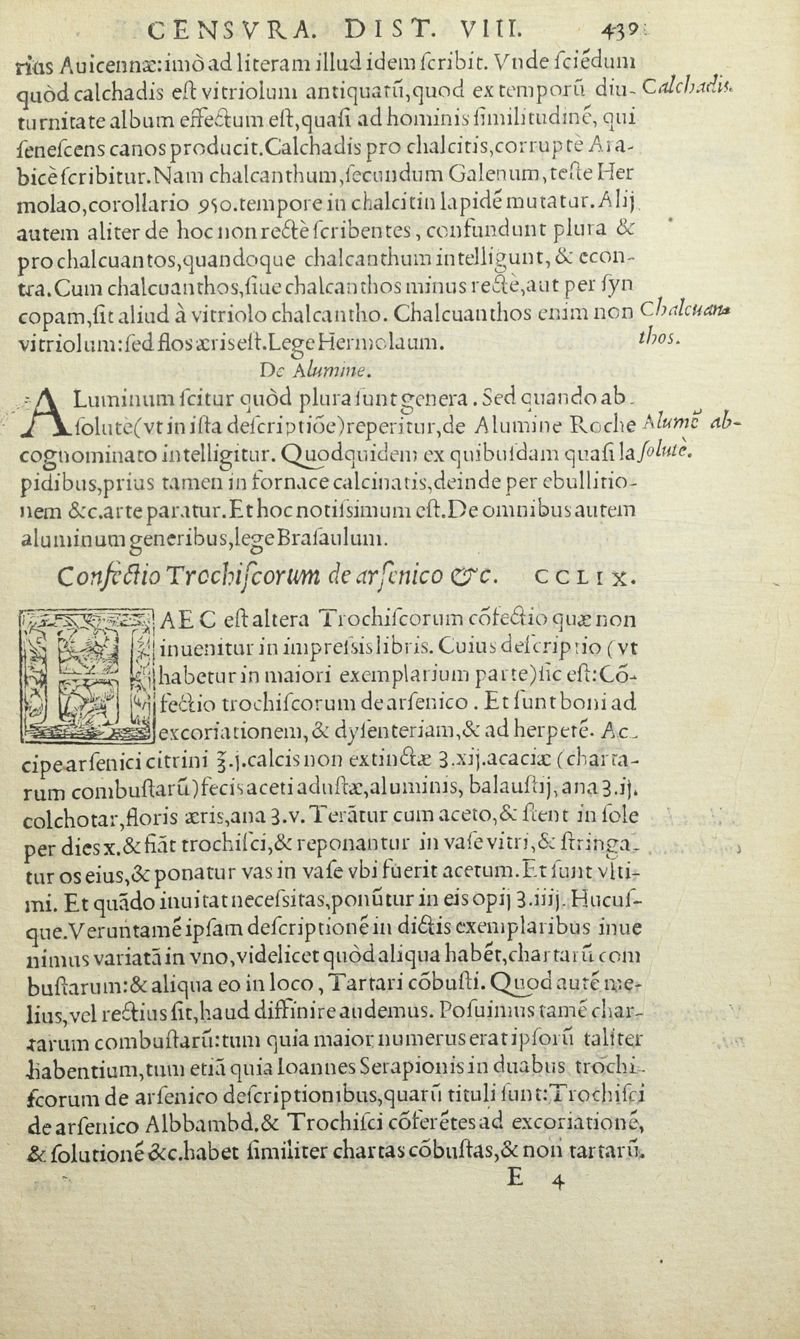 CENSVRA. DIST. VIII. 439
rius Auicennæ:imò ad literam illud idem ſcribit. Vnde ſciẽdum
quòd calchadis eſt vitriolum antiquatũ,quod ex temporũ diu- Calchadis.
turnitate album effectum eſt,quaſi ad hominis ſimilitudinẽ, qui
ſeneſcens canos producit.Calchadis pro chalcitis,corruptè Ara-
bicè ſcribitur.Nam chalcanthum,ſecundum Galenum,teſte Her
molao,corollario 950.tempore in chalcitin lapidẽ mutatur.Alij
autem aliter de hoc non rectè ſcribentes, confundunt plura &
pro chalcuantos,quandoque chalcanthum intelligunt,& econ-
tra.Cum chalcuanthos,ſiue chalcanthos minus rectè,aut per ſyn
copam,ſit aliud à vitriolo chalcantho. Chalcuanthos enim non Chalcuan-
vitriolum:ſed flos æris eſt.Lege Hermolaum. thos.
De Alumine.
ALuminum ſcitur quòd plura ſunt genera. Sed quando ab-
ſolutè(vt in iſta deſcriptiõe)reperitur,de Alumine Roche Alumẽ ab-
cognominato intelligitur. Quod quidem ex quibuſdam quaſi la ſolutè.
pidibus,prius tamen in fornace calcinatis,deinde per ebullitio-
nem &c.arte paratur.Et hoc notiſsimum eſt.De omnibus autem
aluminum generibus,lege Braſaulum.
Confectio Trochiſcorum de arſenico &c. CCLIX.
HAEC eſt altera Trochiſcorum cõfectio quæ non
inuenitur in impreſsis libris. Cuius deſcriptio (vt
habetur in maiori exemplarium parte)ſic eſt:Cõ-
fectio trochiſcorum de arſenico. Et ſunt boni ad
excoriationem,& dyſenteriam,& ad herpetẽ. Ac-
cipe arſenici citrini ℥.j.calcis non extinctæ ʒ.xij.acaciæ (charta-
rum combuſtarũ)fecis aceti aduſtæ,aluminis, balauſtij,ana ʒ.ij.
colchotar,floris æris,ana ʒ.v.Terãtur cum aceto,& ſtent in ſole
per dies x.& fiãt trochiſci,& reponantur in vaſe vitri,& ſtringa-
tur os eius,& ponatur vas in vaſe vbi fuerit acetum.Et ſunt vlti-
mi. Et quãdo inuitat neceſsitas,ponũtur in eis opij ʒ.iiij. Hucuſ-
que.Veruntamẽ ipſam deſcriptionẽ in dictis exemplaribus inue
nimus variatã in vno,videlicet quòd aliqua habẽt,chartarũ com
buſtarum:& aliqua eo in loco, Tartari cõbuſti. Quod autẽ me-
lius,vel rectius ſit,haud diffinire audemus. Poſuimus tamẽ char-
tarum combuſtarũ:tum quia maior numerus erat ipſorũ taliter
habentium,tum etiã quia Ioannes Serapionis in duabus trochi-
ſcorum de arſenico deſcriptionibus,quarũ tituli ſunt:Trochiſci
de arſenico Albbambd.& Trochiſci cõferẽtes ad excoriationẽ,
& ſolutionẽ &c.habet ſimiliter chartas cõbuſtas,& non tartarũ.
E 4